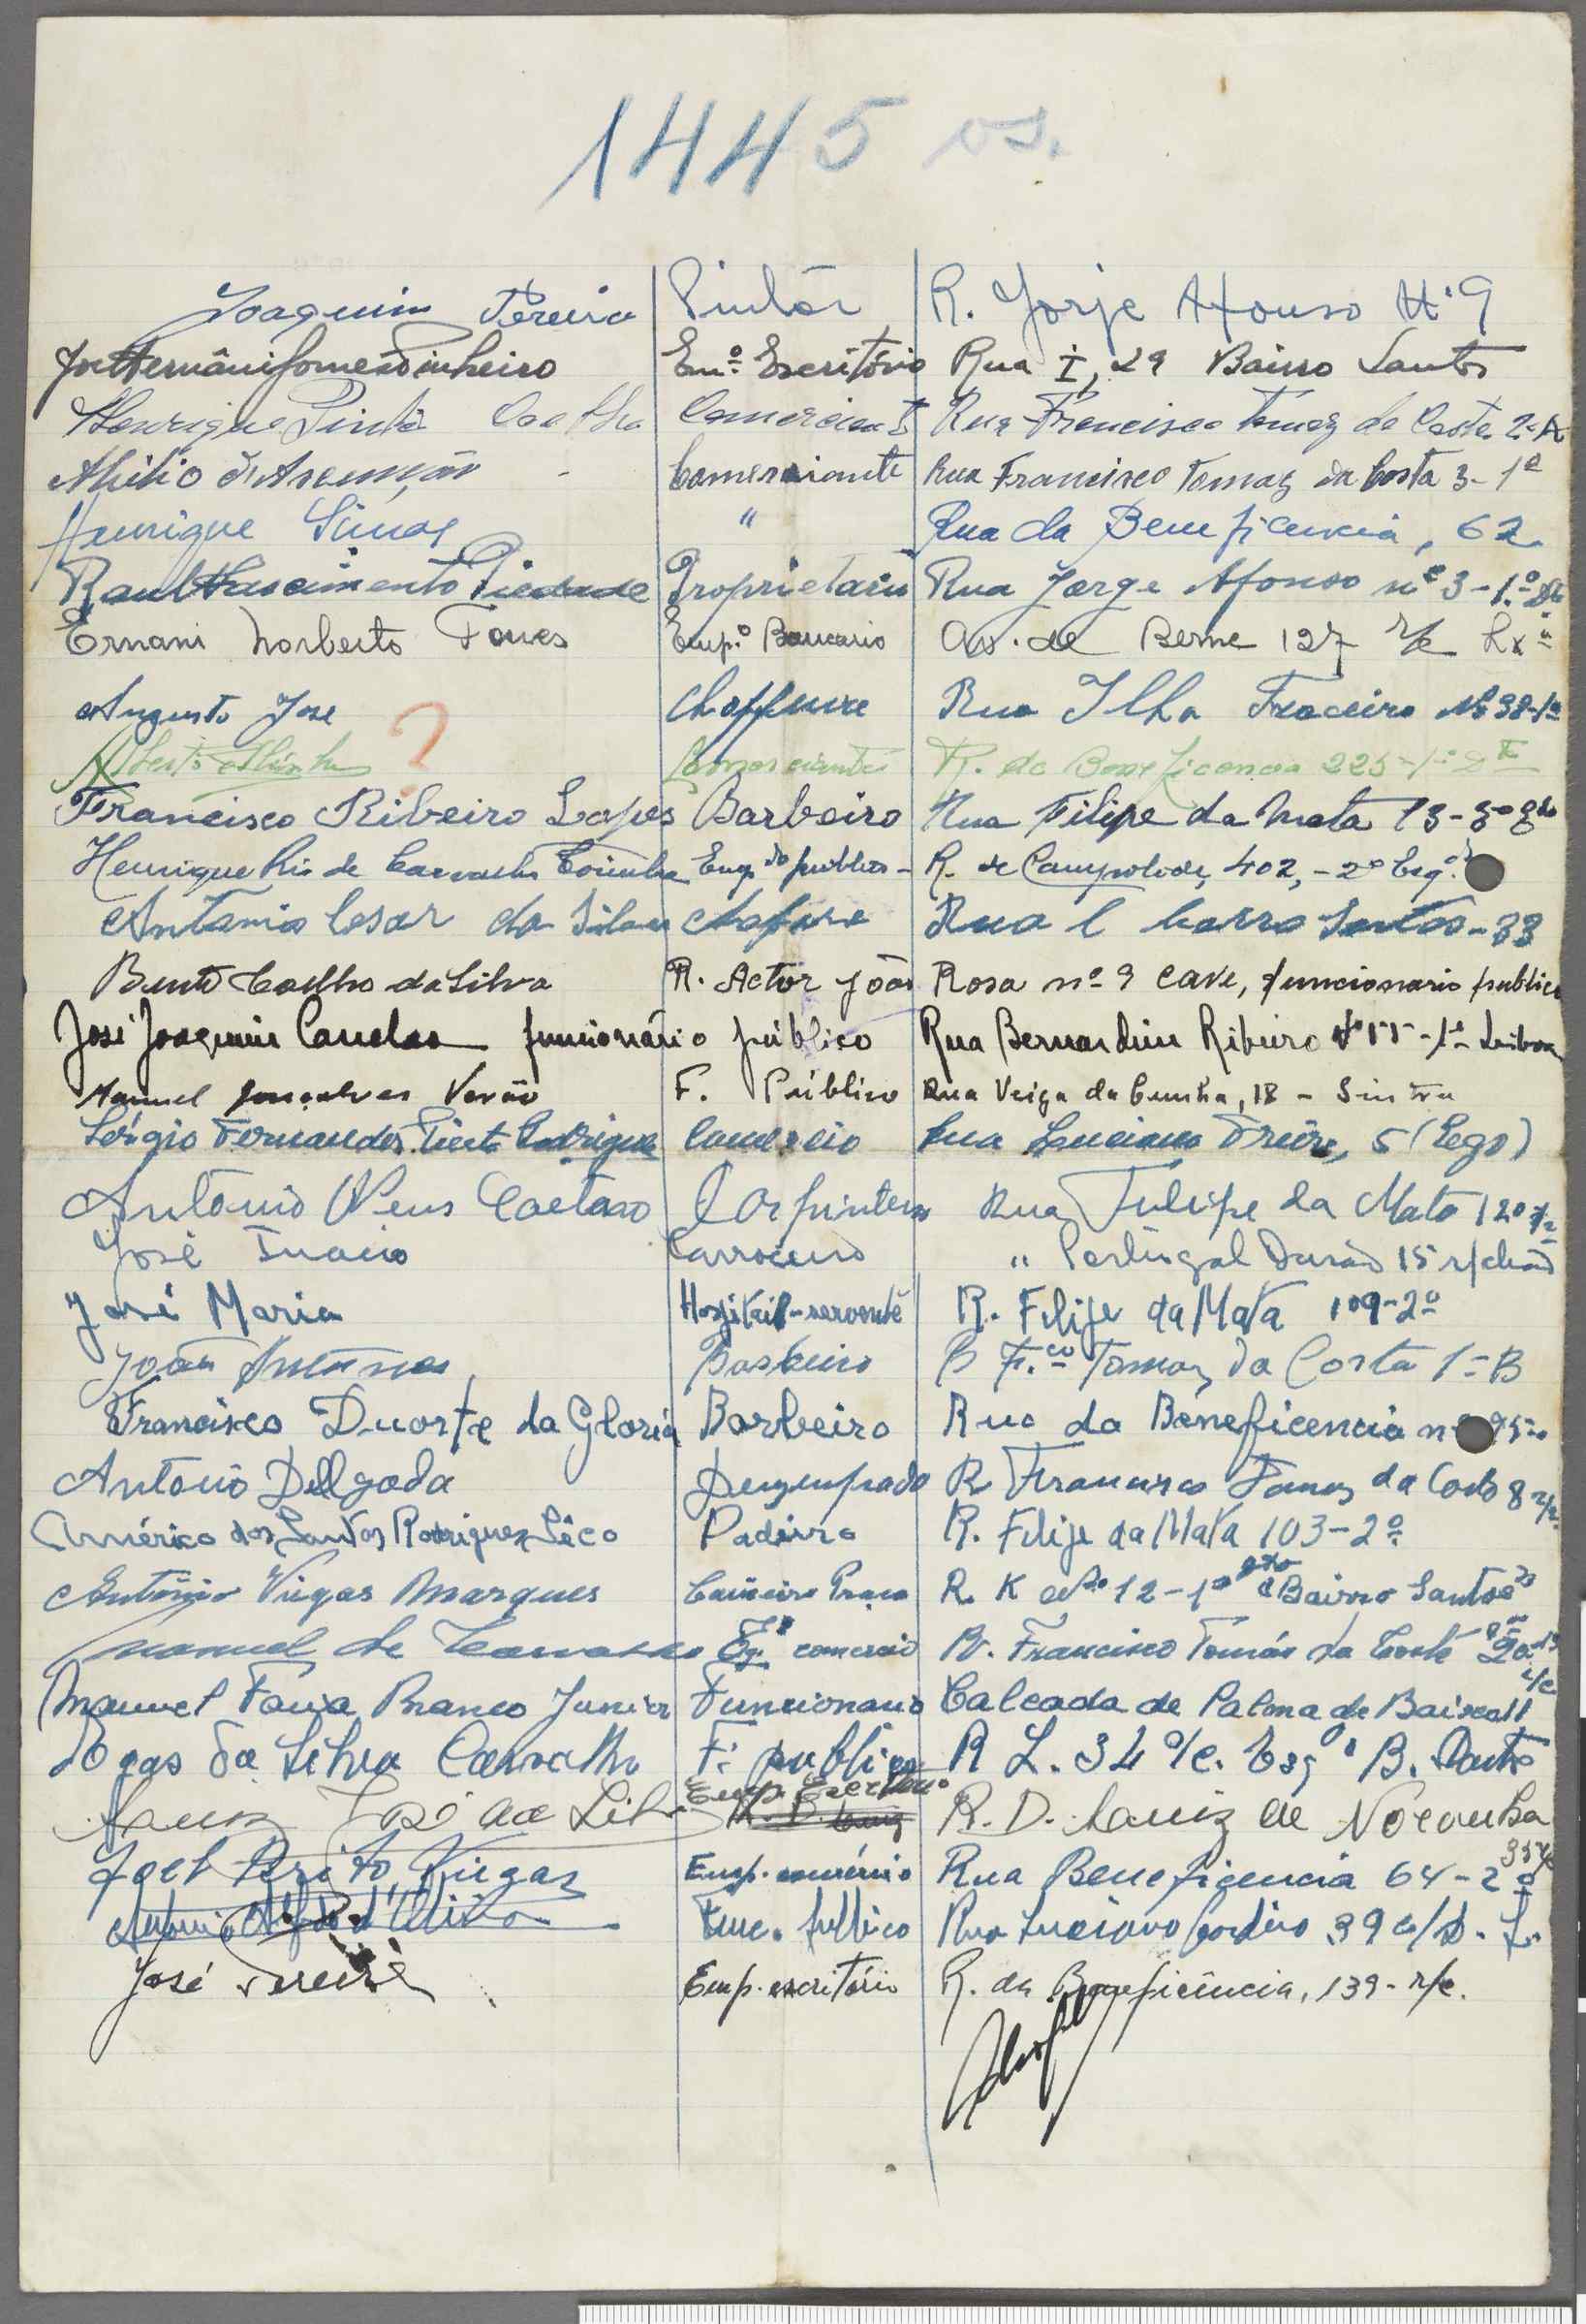 1445 vs.
Joaquim Pereira Pintôr R. Jorje Afonso Nº 9
José Hernâni Gomes Pinheiro Em.º Escritório Rua I, 29 Bairro Santos
Henrique Pinto Coelho Comerciant Rua Francisco Tomaz da Costa 2-A
Abilio d'Assumção Comerciante Rua Francisco Tomaz da Costa 3-1º
Henrique Simas " Rua da Beneficencia, 62
Raul Nascimento Piedade Proprietario Rua Jorge Afonso nº 3-1.º Dto
Ernani Norberto Torres Emp.º Bancario Av. de Berne 127 r/c Lxª
Augusto José Choffeure Rua Ilha Traceira Nº 38-1º
Alberto ? Comerciante R. da Beneficencia 225-1º Dt
Francisco Ribeiro Lopes Barbeiro Rua Filipe da Mata 13-3º
Henrique de Carvalho Coimbra publico R. de Campolide, 402,-2º Esq.
Antonio Cesar da Silva Chofere Rua L Barro Santos-33
Bento Coelho da Silva R. Actor João Rosa nº 9 cave, funcionario publico
José Joaquim Canelas funcionário público Rua Bernardim Ribeiro Nº 55-1º Lisboa
Manuel Gonçalves Verão F. Público Rua Veiga da Cunha, 18 - Sintra
Sérgio Fernandes Pinto Rodrigues Comercio Rua Luciano Freire, 5 (Rego)
António Neus Caetano Carpinteiro Rua Fulipe da Mata 120
José Inácio Carroceiro " Portugal Durão 15 r/chão
José Maria Hospital-servente R. Filipe da Mata 109-2º
João Antunes Barbeiro R F.co Tomaz da Costa 1-B
Francisco Duorte da Gloria Barbeiro Rua da Beneficencia nº 95
António Dellgado Dezempado R Francisco Tomaz da Costa 8 r/c
Américo dos Santos Rodrigues Sêco Padeiro R. Filipe da Mata 103-2º
António Viegas Marques Caixeiro Praça R. K Nº 12-1º Bairro Santos
Manuel de Carvalho comercio R. Francisco Tomás da Costa
Manuel Branco Junior Funcionario Calcada de Palma de Baixo 11 r/c
Egas da Silva Carvalho F. publico R L. 34 r/c. Esqº B. Santos
José da Silva Emp. Escritorio R. D. Luiz de Noronha
Joel Brito Viegas Emp. comércio Rua Beneficencia 64-2º
António d'Oliveira Func. publico Rua Luciano Cordeiro 39 c/D. L.
José Freire Emp. escritório R. da Beneficência, 139-r/c.